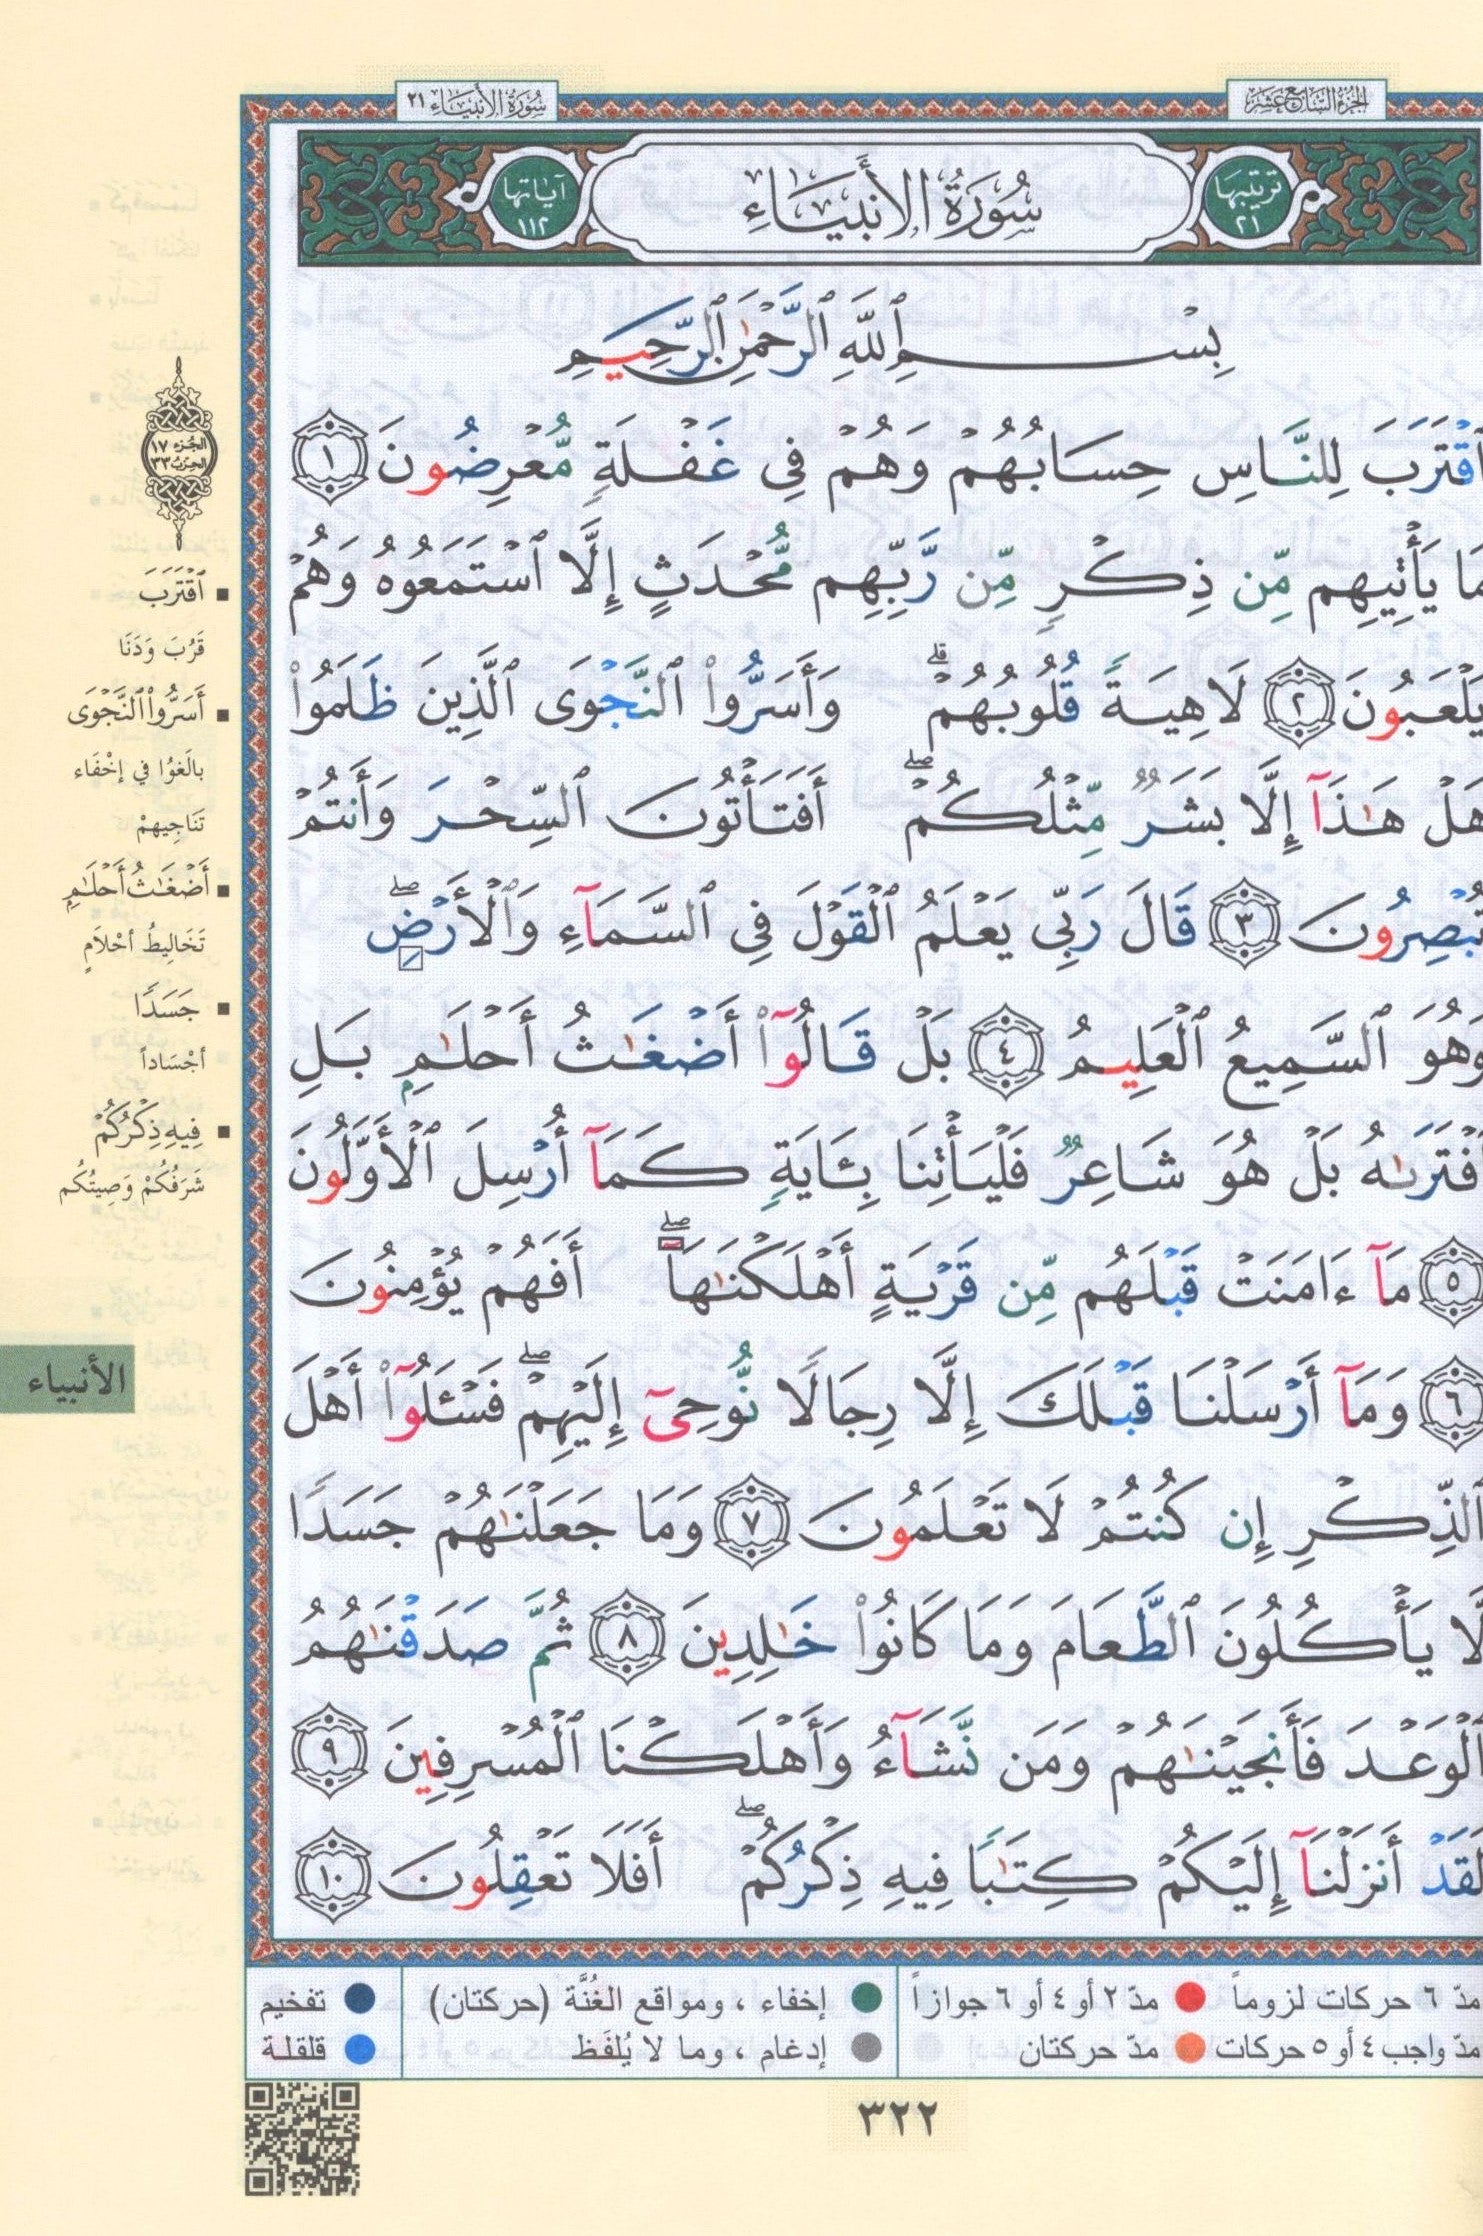 الجزء السابع عشر
سورة الأنبياء ٢١
ترتيبها ٢١
سُورَةُ الأَنبيَاءِ
آياتها ١١٢
بِسْمِ ٱللَّهِ ٱلرَّحْمَٰنِ ٱلرَّحِيمِ
ٱقْتَرَبَ لِلنَّاسِ حِسَابُهُمْ وَهُمْ فِى غَفْلَةٍ مُّعْرِضُونَ ١
مَا يَأْتِيهِم مِّن ذِكْرٍ مِّن رَّبِّهِم مُّحْدَثٍ إِلَّا ٱسْتَمَعُوهُ وَهُمْ
يَلْعَبُونَ ٢ لَاهِيَةً قُلُوبُهُمْ ۗ وَأَسَرُّوا۟ ٱلنَّجْوَى ٱلَّذِينَ ظَلَمُوا۟
هَلْ هَٰذَآ إِلَّا بَشَرٌ مِّثْلُكُمْ ۖ أَفَتَأْتُونَ ٱلسِّحْرَ وَأَنتُمْ
تُبْصِرُونَ ٣ قَالَ رَبِّى يَعْلَمُ ٱلْقَوْلَ فِى ٱلسَّمَآءِ وَٱلْأَرْضِ ۖ
وَهُوَ ٱلسَّمِيعُ ٱلْعَلِيمُ ٤ بَلْ قَالُوٓا۟ أَضْغَٰثُ أَحْلَٰمٍۭ بَلِ
ٱفْتَرَىٰهُ بَلْ هُوَ شَاعِرٌ فَلْيَأْتِنَا بِـَٔايَةٍ كَمَآ أُرْسِلَ ٱلْأَوَّلُونَ
٥ مَآ ءَامَنَتْ قَبْلَهُم مِّن قَرْيَةٍ أَهْلَكْنَٰهَآ ۖ أَفَهُمْ يُؤْمِنُونَ
٦ وَمَآ أَرْسَلْنَا قَبْلَكَ إِلَّا رِجَالًا نُّوحِىٓ إِلَيْهِمْ ۖ فَسْـَٔلُوٓا۟ أَهْلَ
ٱلذِّكْرِ إِن كُنتُمْ لَا تَعْلَمُونَ ٧ وَمَا جَعَلْنَٰهُمْ جَسَدًا
لَّا يَأْكُلُونَ ٱلطَّعَامَ وَمَا كَانُوا۟ خَٰلِدِينَ ٨ ثُمَّ صَدَقْنَٰهُمُ
ٱلْوَعْدَ فَأَنجَيْنَٰهُمْ وَمَن نَّشَآءُ وَأَهْلَكْنَا ٱلْمُسْرِفِينَ ٩
لَقَدْ أَنزَلْنَآ إِلَيْكُمْ كِتَٰبًا فِيهِ ذِكْرُكُمْ ۖ أَفَلَا تَعْقِلُونَ ١٠
الجزء ١٧
الحزب ٣٣
▪ ٱقْتَرَبَ
قَرُبَ وَدَنَا
▪ أَسَرُّوا۟ ٱلنَّجْوَى
بالَغوُا في إخْفَاء
تَنَاجِيهمْ
▪ أَضْغَٰثُ أَحْلَٰمٍ
تَخَالِيطُ أحْلاَمٍ
▪ جَسَدًا
أجْسَاداً
▪ فِيهِ ذِكْرُكُمْ
شَرَفُكُمْ وَصِيتُكُم
الأنبياء
مدّ ٦ حركات لزوماً ● مدّ ٢ أو ٤ أو ٦ جوازاً
مدّ واجب ٤ أو ٥ حركات ● مدّ حركتان
● إخفاء ، ومواقع الغُنَّة (حركتان)
● إدغام ، وما لا يُلفَظ
● تفخيم
● قلقلة
٣٢٢